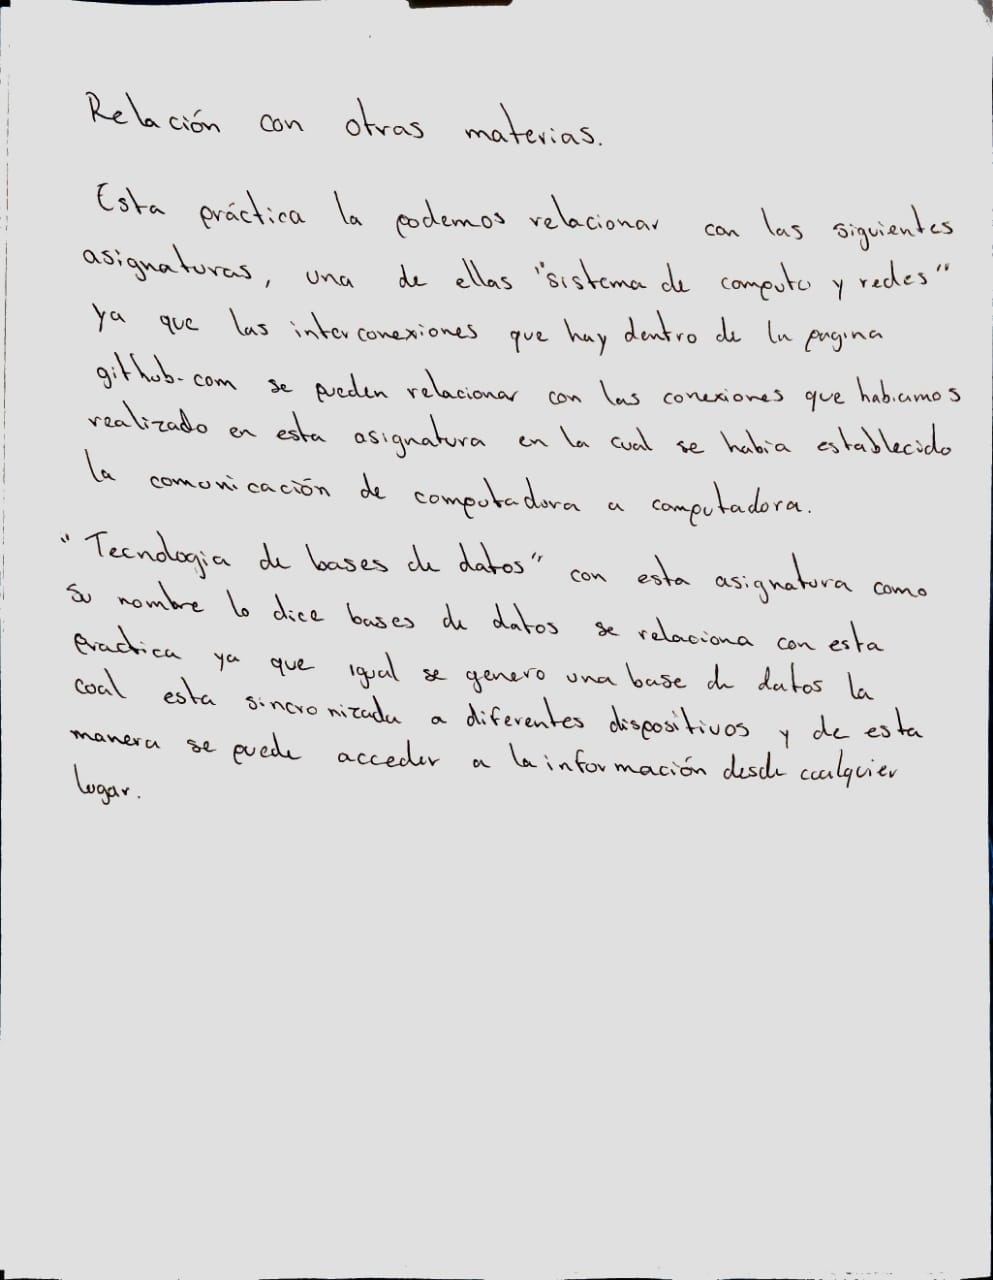 Relación con otras materias.
Esta práctica la podemos relacionar con las siguientes
asignaturas, una de ellas "sistema de computo y redes"
ya que las interconexiones que hay dentro de la pagina
github.com se pueden relacionar con las conexiones que habiamos
realizado en esta asignatura en la cual se habia establecido
la comunicación de computadora a computadora.
"Tecnologia de bases de datos" con esta asignatura como
su nombre lo dice bases de datos se relaciona con esta
practica ya que igual se genero una base de datos la
cual esta sincronizada a diferentes dispositivos y de esta
manera se puede acceder a la información desde cualquier
lugar.